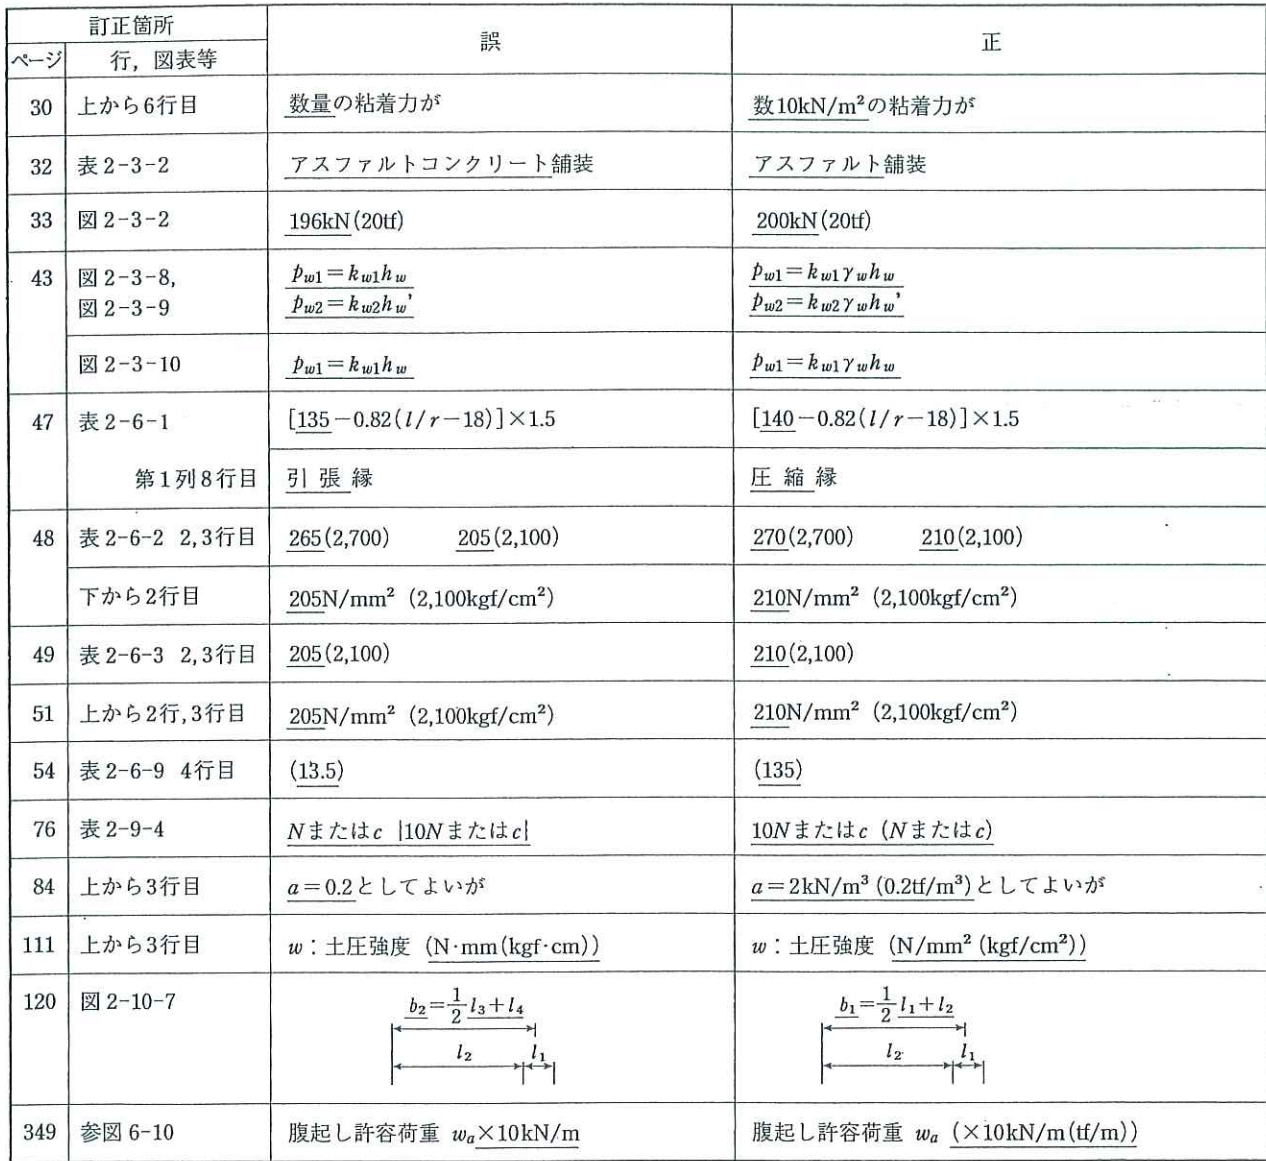 訂正箇所 誤 正
ページ 行，図表等
30 上から6行目 数量の粘着力が 数10kN/m²の粘着力が
32 表2-3-2 アスファルトコンクリート舗装 アスファルト舗装
33 図2-3-2 196kN(20tf) 200kN(20tf)
43 図2-3-8, p_{w1}=k_{w1}h_w p_{w1}=k_{w1}γ_w h_w
図2-3-9 p_{w2}=k_{w2}h_w' p_{w2}=k_{w2}γ_w h_w'
図2-3-10 p_{w1}=k_{w1}h_w p_{w1}=k_{w1}γ_w h_w
47 表2-6-1 [135-0.82(l/r-18)]×1.5 [140-0.82(l/r-18)]×1.5
第1列8行目 引張縁 圧縮縁
48 表2-6-2 2,3行目 265(2,700) 205(2,100) 270(2,700) 210(2,100)
下から2行目 205N/mm² (2,100kgf/cm²) 210N/mm² (2,100kgf/cm²)
49 表2-6-3 2,3行目 205(2,100) 210(2,100)
51 上から2行,3行目 205N/mm² (2,100kgf/cm²) 210N/mm² (2,100kgf/cm²)
54 表2-6-9 4行目 (13.5) (135)
76 表2-9-4 Nまたはc |10Nまたはc| 10Nまたはc (Nまたはc)
84 上から3行目 a=0.2としてよいが a=2kN/m³(0.2tf/m³)としてよいが
111 上から3行目 w：土圧強度 (N·mm(kgf·cm)) w：土圧強度 (N/mm²(kgf/cm²))
120 図2-10-7 b₂=1/2 l₃+l₄ b₁=1/2 l₁+l₂
l₂ l₁ l₂ l₁
349 参図6-10 腹起し許容荷重 w_a×10kN/m 腹起し許容荷重 w_a (×10kN/m(tf/m))